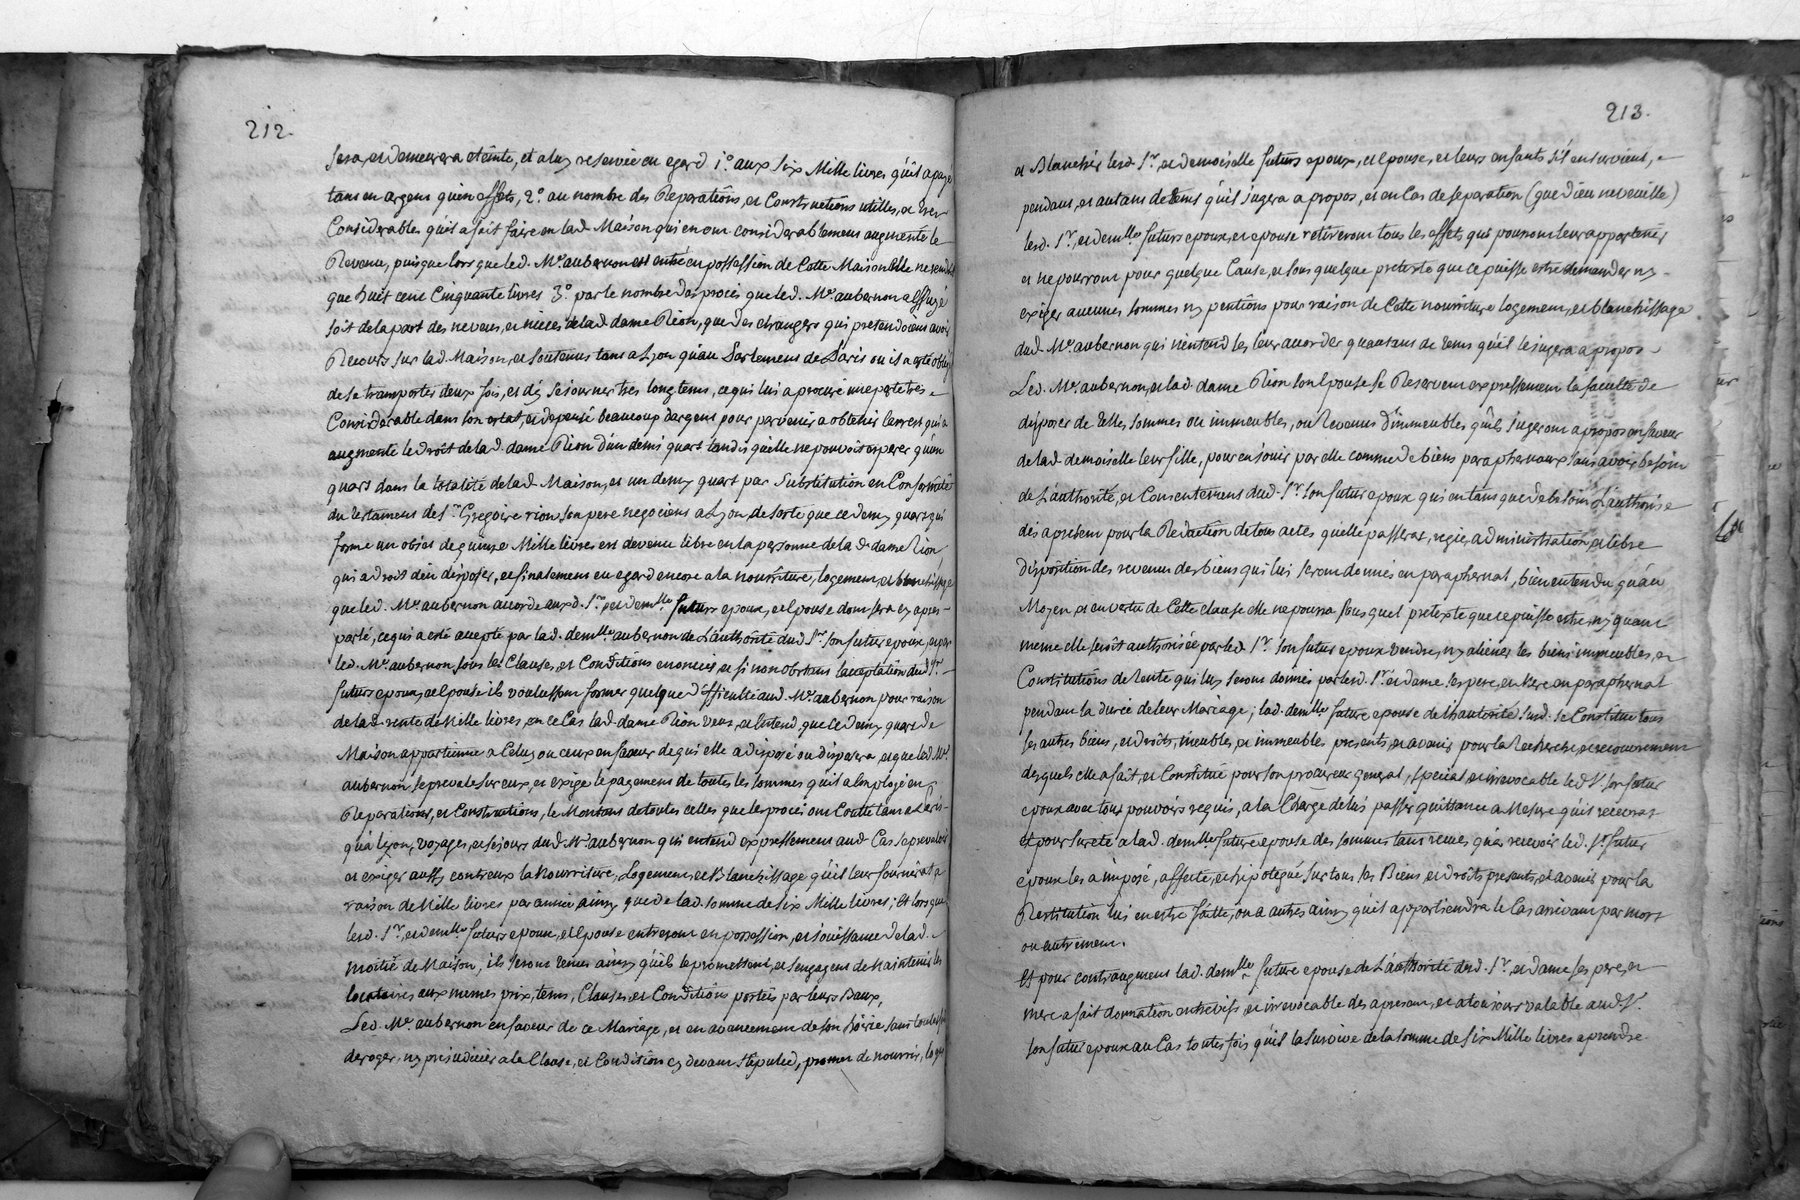 212.
sera, et demeurera eteinte, et a luy reservée eu egard 1° aux six Mille livres qu'il a payé
tant en argent qu'en effets, 2° au nombre des Reparations, et Constructions utilles, et tres
Considerables qu'il a fait faire en lad. Maison qui en ont considerablement augmenté le
Revenu, puisque lors que led. Me aubernon est entré en possession de Cette Maison Elle ne rendoit
que huit cent Cinquante livres 3° par le nombre des procès que led. Me aubernon a essuyé
soit de la part des neveux, et nieces de lad. dame Rion, que des etrangers qui pretendoient avoir
Recours sur lad. Maison, et soutenus tant a Lyon qu'au Parlement de Paris ou il a eté obligé
de se transporter deux fois, et d'y sejourner tres longtems, ce qui lui a procuré une perte tres
Considerable dans son estat, et depensé beaucoup d'argent pour parvenir a obtenir l'arrest qui a
augmenté le droit de lad. dame Rion d'un demi quart tandis qu'elle ne pouvoit esperer qu'un
quart dans la totalité de lad. Maison, et un demy quart par Substitution en Conformité
du testament de Sr. Gregoire rion son pere negociant a Lyon, de sorte que ce demy quart qui
forme un objet de quinze Mille livres est devenu libre en la personne de lad. dame Rion
qui a droit d'en disposer, et finalement eu egard encore a la nourriture, logement, et blanchissage
que led. Me aubernon accorde auxd. Sr. et demlle futurs epoux, et epouse dont sera cy apres
parlé, ce qui a esté accepté par lad. demlle aubernon de L'authorité dud. Sr. son futur epoux, et par
led. Me aubernon sous les Clauses, et Conditions enoncées et si nonobstant l'acceptation dud. Sr.
futurs epoux, et epouse ils voulussent former quelque difficulté aud. Me aubernon pour raison
de lad. rente de Mille livres, en ce Cas lad. dame Rion veut, et entend, que ce demy quart de
Maison appartienne a Celuy ou ceux en faveur de qui elle a disposé ou disposera et que led. Me
aubernon se prevale sur eux, et exige le payement de toutes les sommes qu'il a employé en
Reparations, et Constructions, le Montant de toutes celles que les procès ont Coutté tant a Paris
qu'a Lyon, voyages, et sejours dud. Me aubernon qui entend expressement aud. Cas se prevaloir
et exiger aussy contr'eux la Nourriture, Logement, et Blanchissage qu'il leur fournira a
raison de Mille livres par année ainsy que de lad. somme de six Mille livres; Et lors que
lesd. Sr., et demlle futurs epoux, et epouse entreront en possession, et jouissance de lad.
moitié de Maison, ils seront tenus ainsy qu'ils le promettent, et s'engagent de Maintenir les
locataires aux memes prix, tems, Clauses, et Conditions portées par leurs Baux,
Led. Me aubernon en faveur de ce Mariage, et en avancement de son hoirie sans toutesfois
deroger, ny prejudicier a la Clause, et Condition cy devant stipulée, promet de nourrir, loger
213.
et Blanchir lesd. Sr. et demoiselle futurs epoux, et epouse, et leurs enfants s'il en survient,
pendant, et autant de tems qu'il jugera a propos, et en Cas de separation (que dieu ne veuille)
lesd. Sr., et demlle futurs epoux, et epouse retireront tous les effets qui pourront leur appartenir
et ne pourront pour quelque Cause, et sous quelque pretexte que ce puisse estre demander ny
exiger aucunes sommes ny pentions pour raison de Cette nourriture logement, et blanchissage
dud. Me aubernon qui n'entend les leur accorder qu'autant de tems qu'il le jugera a propos
Led. Me aubernon, et lad. dame Rion son Epouse se Reservent expressement la faculté de
disposer de telles sommes ou immeubles, ou Revenus d'immeubles qu'ils jugeront a propos en faveur
de lad. demoiselle leur fille, pour en jouir par elle comme de biens paraphernaux sans avoir besoin
de L'authorité, et Consentement dud. Sr. son futur epoux qui en tant que de besoin L'authorise
dès apresent pour la Redaction de tous actes qu'elle passeras, regie, administration, et libre
disposition des revenus des biens qui lui seront donnés en paraphernal, bien entendu qu'au
Moyen et en vertu de Cette clause elle ne pourra sous quel pretexte que ce puisse estre, ny quant
meme elle seroit authorisée par led. Sr. son futur epoux vendre, ny aliener les biens immeubles, et
Constitutions de rente qui luy seront donnés par lesd. Sr. et dame ses pere, et Mere en paraphernal
pendant la durée de leur Mariage; lad. demlle future epouse de l'hautorité susd. se Constitue tous
ses autres biens, et droits, meubles, et immeubles presents, et avenir pour la Recherche, et recouvrement
desquels elle a fait, et Constitué pour son procureur general, special et irrevocable led. Sr. son futur
epoux avec tous pouvoirs requis, a la Charge de lui passer quittance a Mesure qu'il recevras
et pour sureté a lad. demlle future epouse des sommes tant reçues qu'a recevoir led. Sr. futur
epoux les a imposé, affecté, et hipotequé sur tous ses Biens, et droits presents, et avenir pour la
Restitution lui en estre faitte, ou a autres ainsy qu'il appartiendra le Cas arrivant par mort
ou autrement.
Et pour contraugment lad. demlle future epouse de L'authorité dud. Sr., et dame ses pere, et
mere a fait donnation entre vifs, et irrevocable des apresent, et a toujours valable aud. Sr.
son futur epoux au Cas toutes fois qu'il la survive de la somme de six Mille livres a prendre